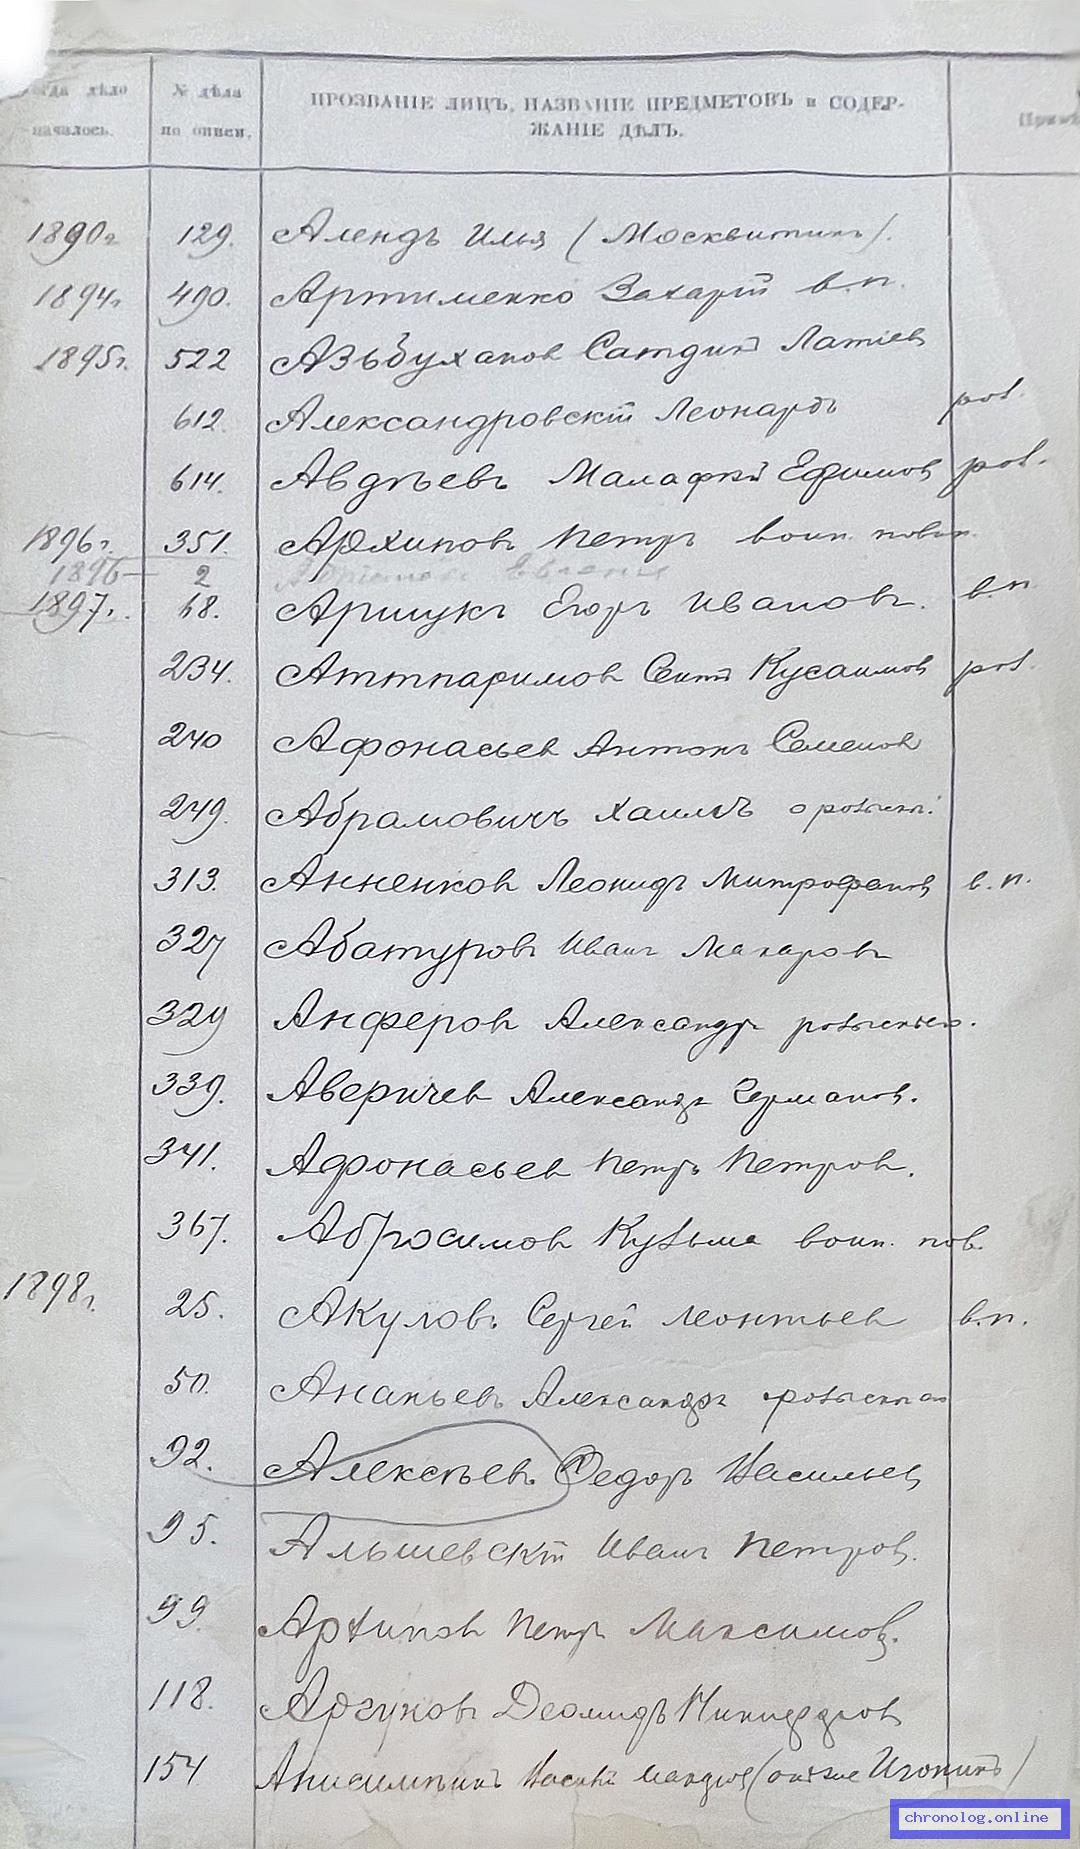 дѣло № дѣла ПРОЗВАНІЕ ЛИЦЪ, НАЗВАНІЕ ПРЕДМЕТОВЪ и СОДЕР-
началось. по описи. ЖАНІЕ ДѢЛЪ.
1890г 129. Алендъ Илья (Москвитинъ).
1894г 490. Артименко Захарій в.п.
1895г. 522 Азьбуханов Сатдин Латіев
612. Александровскій Леонардъ роз.
614. Авдѣевъ Малафій Ефимов роз.
1896г. 351. Архипов Петръ воин. повин.
1896 2 Евгенія
1897г. 68. Аршукъ Егоръ Иванов. в.п.
234. Аттпаримов Сеит Кусаимов роз.
240 Афонасьев Антонъ Семенов
249. Абрамовичъ Хаимъ о розыски.
313. Анненков Леонидъ Митрофанов в.п.
327 Абатуровъ Иванъ Макаровъ
329 Анферов Александръ розыскив.
339. Аверичев Александръ Германов.
341. Афонасьев Петръ Петров.
367. Абросимов Кузьма воин. пов.
1898г. 25. Акулов. Сергей Леонтьев в.п.
50. Ананьевъ Александръ
92. Алексѣев. Федоръ Васильев
95. Альшевскій Иванъ Петров.
99. Архипов Петръ Максимов.
118. Аргуновъ Деомидъ
154 Васил (онъ же Игонинъ)
chronolog.online